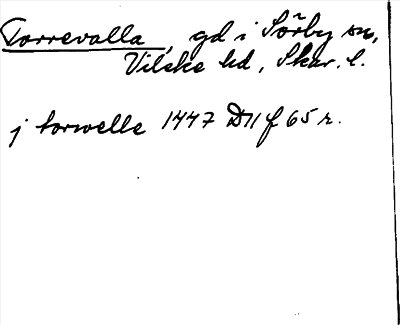 Torrevalla, gd i Sörby sn,
Vilske hd, Skar. l.
j torwelle 1447 D 11 f 65 r.